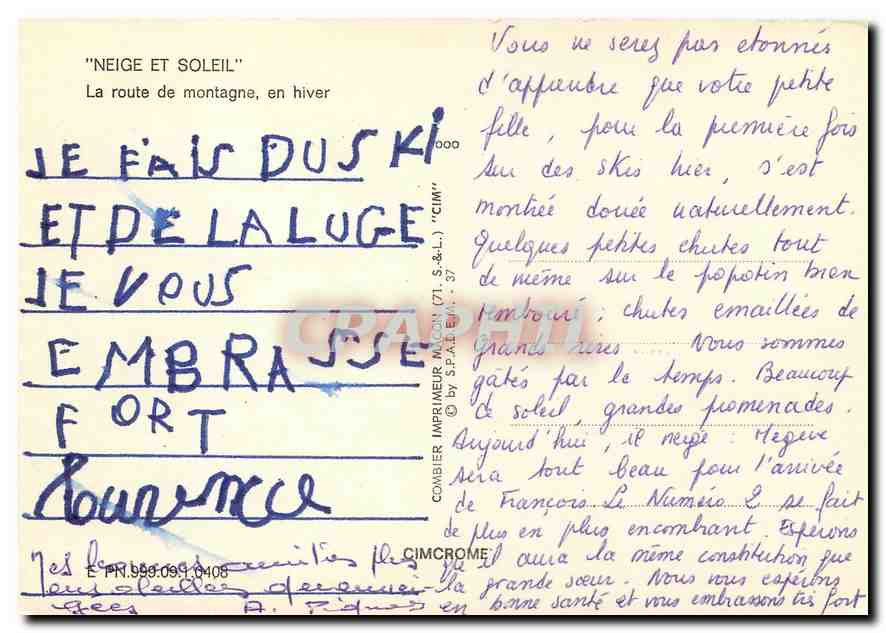 "NEIGE ET SOLEIL"
La route de montagne, en hiver
JE FAIS DU SKI
ET DE LA LUGE
JE VOUS
EMBRASSE
FORT
Laurence
E PN.999.09.1.0408
A.
CIMCROME
COMBIER IMPRIMEUR MACON (71. S.-&-L.) "CIM"
© by S.P.A.D.E.M. - 37
CPAPHIL
Vous ne serez pas etonnés
d'apprendre que votre petite
fille, pour la première fois
sur des skis hier, s'est
montrée douée naturellement.
Quelques petites chutes tout
de même sur le popotin bien
rembourré ; chutes emaillées de
grands rires..... Vous sommes
gâtés par le temps. Beaucoup
de soleil, grandes promenades.
Aujourd'hui, il neige : Megève
sera tout beau pour l'arrivée
de François. Le Numéro 2 se fait
de plus en plus encombrant. Espérons
qu'il aura la même constitution que
la grande sœur. Nous vous espérons
en bonne santé et vous embrassons très fort